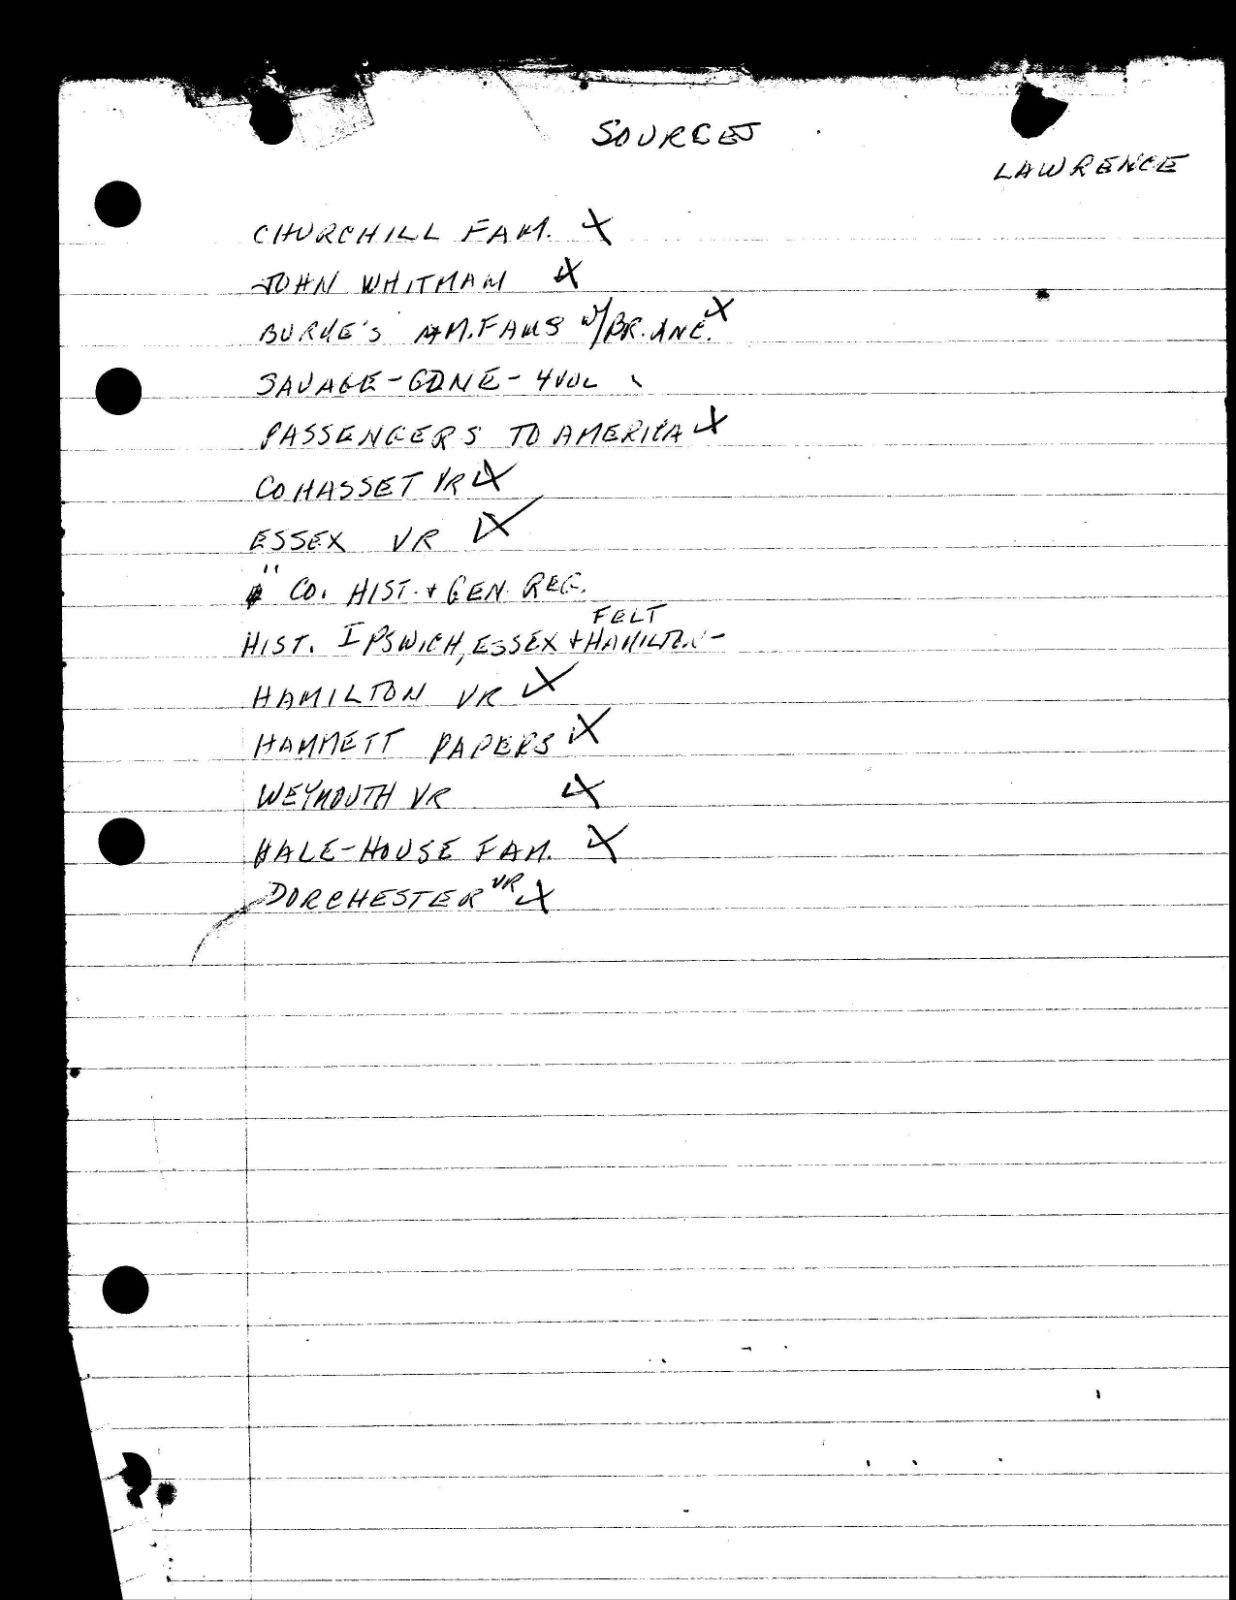 SOURCES
LAWRENCE
CHURCHILL FAM. X
JOHN WHITMAN X
BURKE'S AM. FAMS W/BR. ANC. X
SAVAGE-GDNE-4VOL
PASSENGERS TO AMERICA X
COHASSET VR X
ESSEX VR X
" CO. HIST. + GEN. REG.
FELT
HIST. IPSWICH, ESSEX + HAMILTON-
HAMILTON VR X
HAMMETT PAPERS X
WEYMOUTH VR X
HALE-HOUSE FAM. X
DORCHESTER VR X